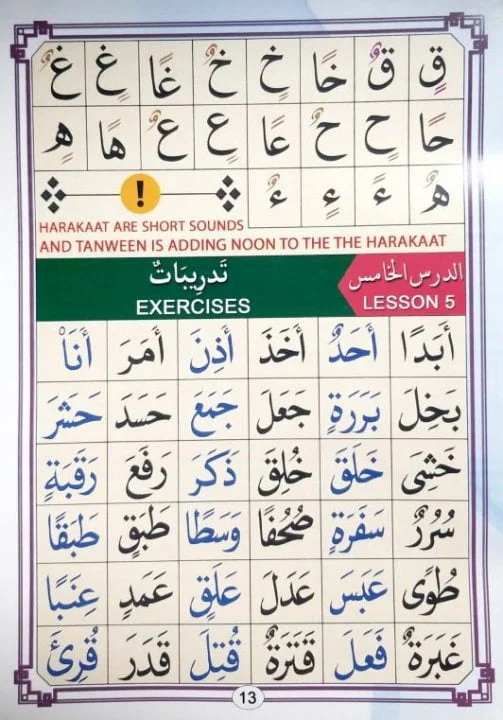 قٍ قٌ خًا خٍ خٌ غًا غٍ غٌ
حًا حٍ حٌ عًا عٍ عٌ هًا هٍ
هٌ ءً ءٍ ءٌ !
HARAKAAT ARE SHORT SOUNDS
AND TANWEEN IS ADDING NOON TO THE THE HARAKAAT
الدرس الخامس تَدرِيبَاتٌ
LESSON 5 EXERCISES
أَبَدًا أَحَدٌ أَخَذَ أَذِنَ أَمَرَ أَنَاْ
بَخِلَ بَرَرَةٍ جَعَلَ جَمَعَ حَسَدَ حَشَرَ
خَشِيَ خَلَقَ خُلِقَ ذَكَرَ رَفَعَ رَقَبَةٍ
سُرُرٌ سَفَرَةٍ صُحُفًا وَسَطًا طَبَقٍ طَبَقًا
طُوًى عَبَسَ عَدَلَ عَلَقٍ عَمَدٍ عِنَبًا
غَبَرَةٌ فَعَلَ قَتَرَةٌ قُتِلَ قَدَرَ قُرِئَ
13